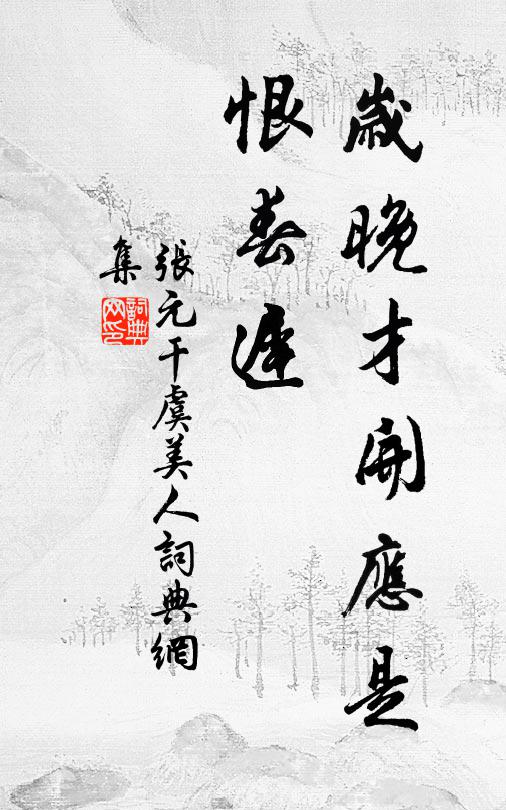 歲晚才開應是
恨春遲
張元干虞美人詞典網
集
詞典
网印